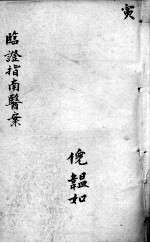 寅
臨證指南醫案
俛韞如